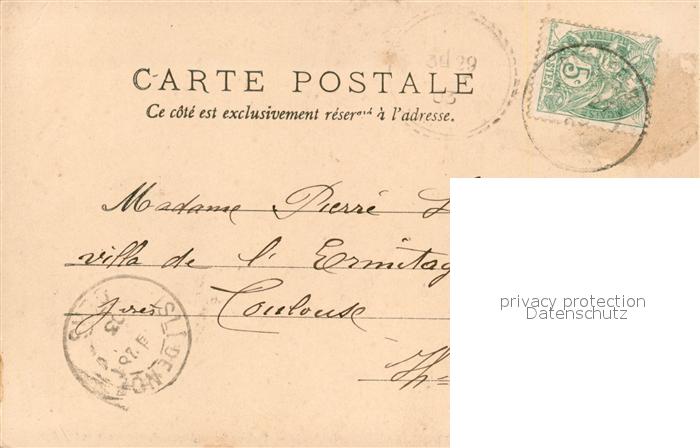 CARTE POSTALE
Ce côté est exclusivement réservé à l'adresse.
5c
POSTES
29
03
Madame Pierre
villa de l'Ermitag
près Toulouse
Hte
03
privacy protection
Datenschutz